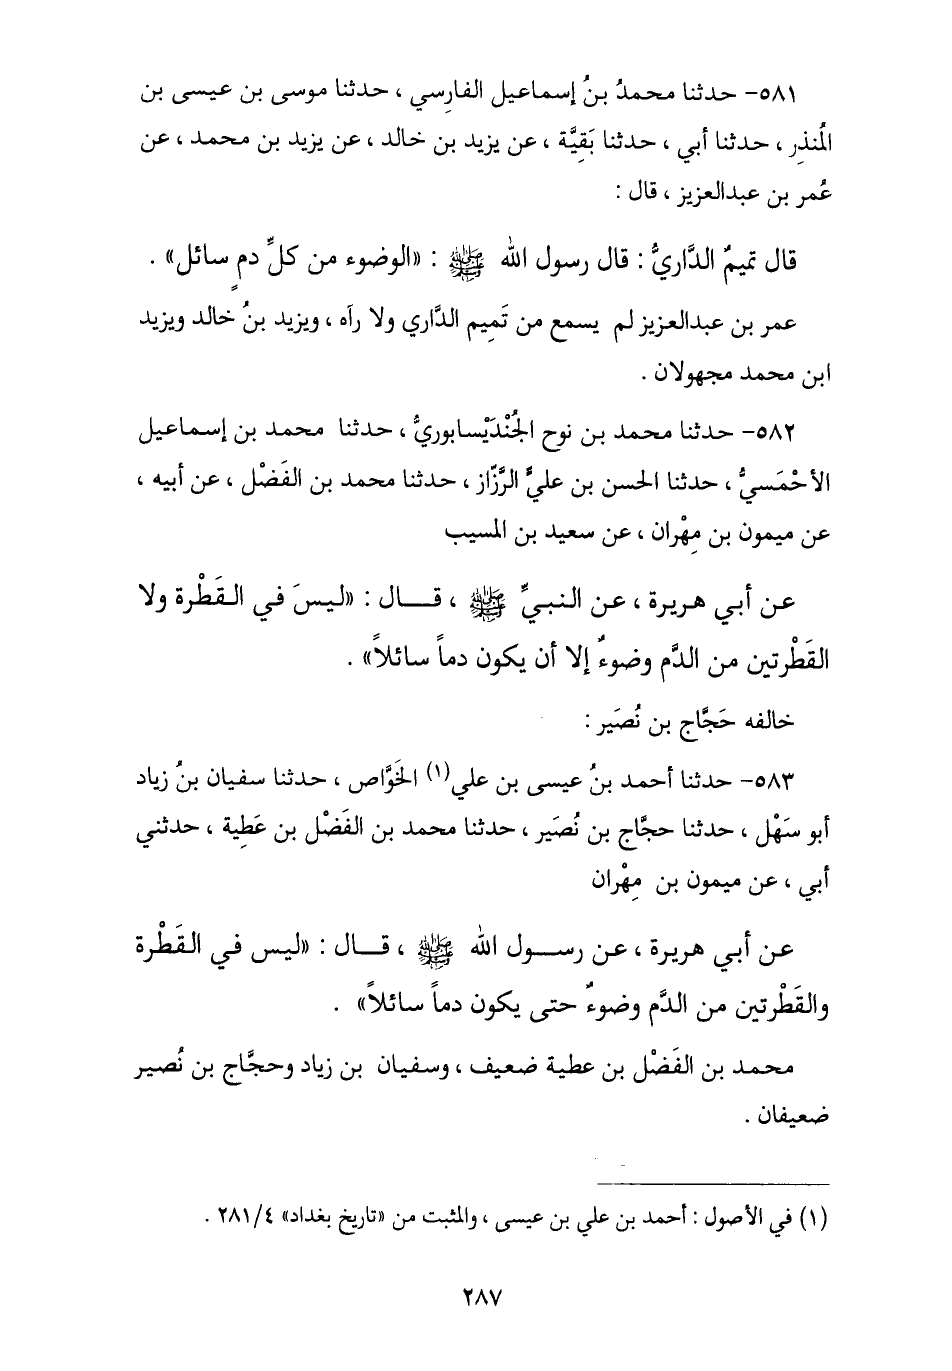 ٥٨١- حدثنا محمدُ بنُ إسماعيل الفارِسي ، حدثنا موسى بن عيسى بن
المُنذِر ، حدثنا أبي ، حدثنا بَقِيَّة ، عن يزيد بن خالد ، عن يزيد بن محمد ، عن
عُمر بن عبدالعزيز ، قال :
قال تميمٌ الدَّاريُّ : قال رسول الله ﷺ : «الوضوء من كلِّ دمٍ سائل» .
عمر بن عبدالعزيز لم يسمع من تَمِيم الدَّاري ولا رآه ، ويزيد بنُ خالد ويزيد
ابن محمد مجهولان .
٥٨٢- حدثنا محمد بن نوح الجُنْدَيْسابوريُّ ، حدثنا محمد بن إسماعيل
الأحْمَسيُّ ، حدثنا الحسن بن عليٍّ الرَّزَّاز ، حدثنا محمد بن الفَضْل ، عن أبيه ،
عن ميمون بن مِهْران ، عن سعيد بن المسيب
عن أبي هريرة ، عن النبيِّ ﷺ ، قــال : «ليسَ في القَطْرة ولا
القَطْرتين من الدَّم وضوءٌ إلا أن يكون دماً سائلاً» .
خالفه حَجَّاج بن نُصَير :
٥٨٣- حدثنا أحمد بنُ عيسى بن علي(١) الخَوَّاص ، حدثنا سفيان بنُ زياد
أبو سَهْل ، حدثنا حجَّاج بن نُصَير ، حدثنا محمد بن الفَضْل بن عَطِية ، حدثني
أبي ، عن ميمون بن مِهْران
عن أبي هريرة ، عن رســول الله ﷺ ، قــال : «ليس في القَطْرة
والقَطْرتين من الدَّم وضوءٌ حتى يكون دماً سائلاً» .
محمد بن الفَضْل بن عطية ضعيف ، وسفيان بن زياد وحجَّاج بن نُصير
ضعيفان .
(١) في الأصول : أحمد بن علي بن عيسى ، والمثبت من «تاريخ بغداد» ٢٨١/٤ .
٢٨٧